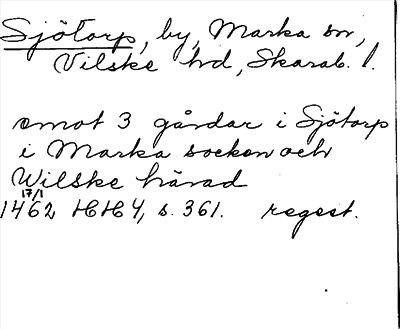 Sjötorp, by, Marka sn,
Vilske hd, Skarab. l.
emot 3 gårdar i Sjötorp
i Marka socken och
Wilske härad
17/1
1462 HH 4, s. 361. regest.